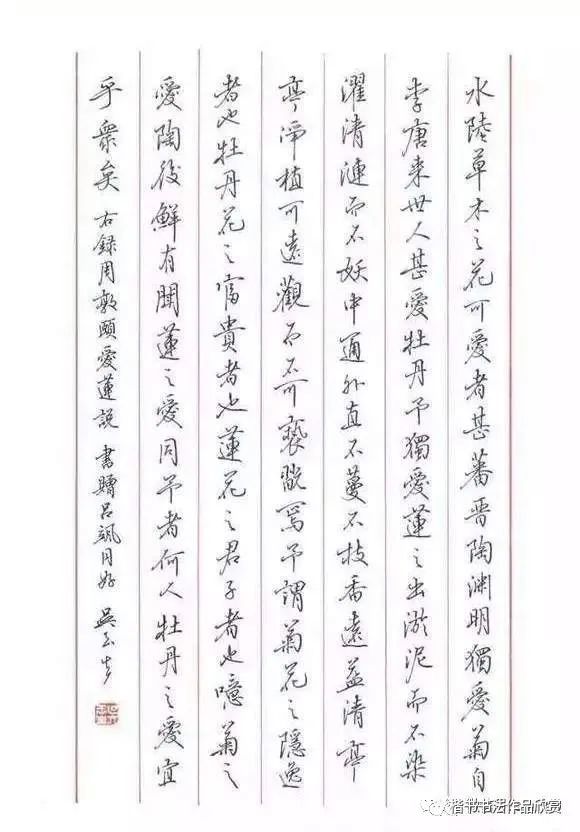 水陸草木之花可愛者甚蕃晋陶渊明獨愛菊自
李唐来世人甚愛牡丹予獨愛蓮之出淤泥而不染
濯清漣而不妖中通外直不蔓不枝香遠益清亭
亭淨植可遠觀而不可褻翫焉予謂菊花之隱逸
者也牡丹花之富貴者也蓮花之君子者也噫菊之
愛陶後鮮有聞蓮之愛同予者何人牡丹之愛宜
乎衆矣 右録周敦頤愛蓮説 書贈吕颯同好 吳玉生
楷书书法作品欣赏